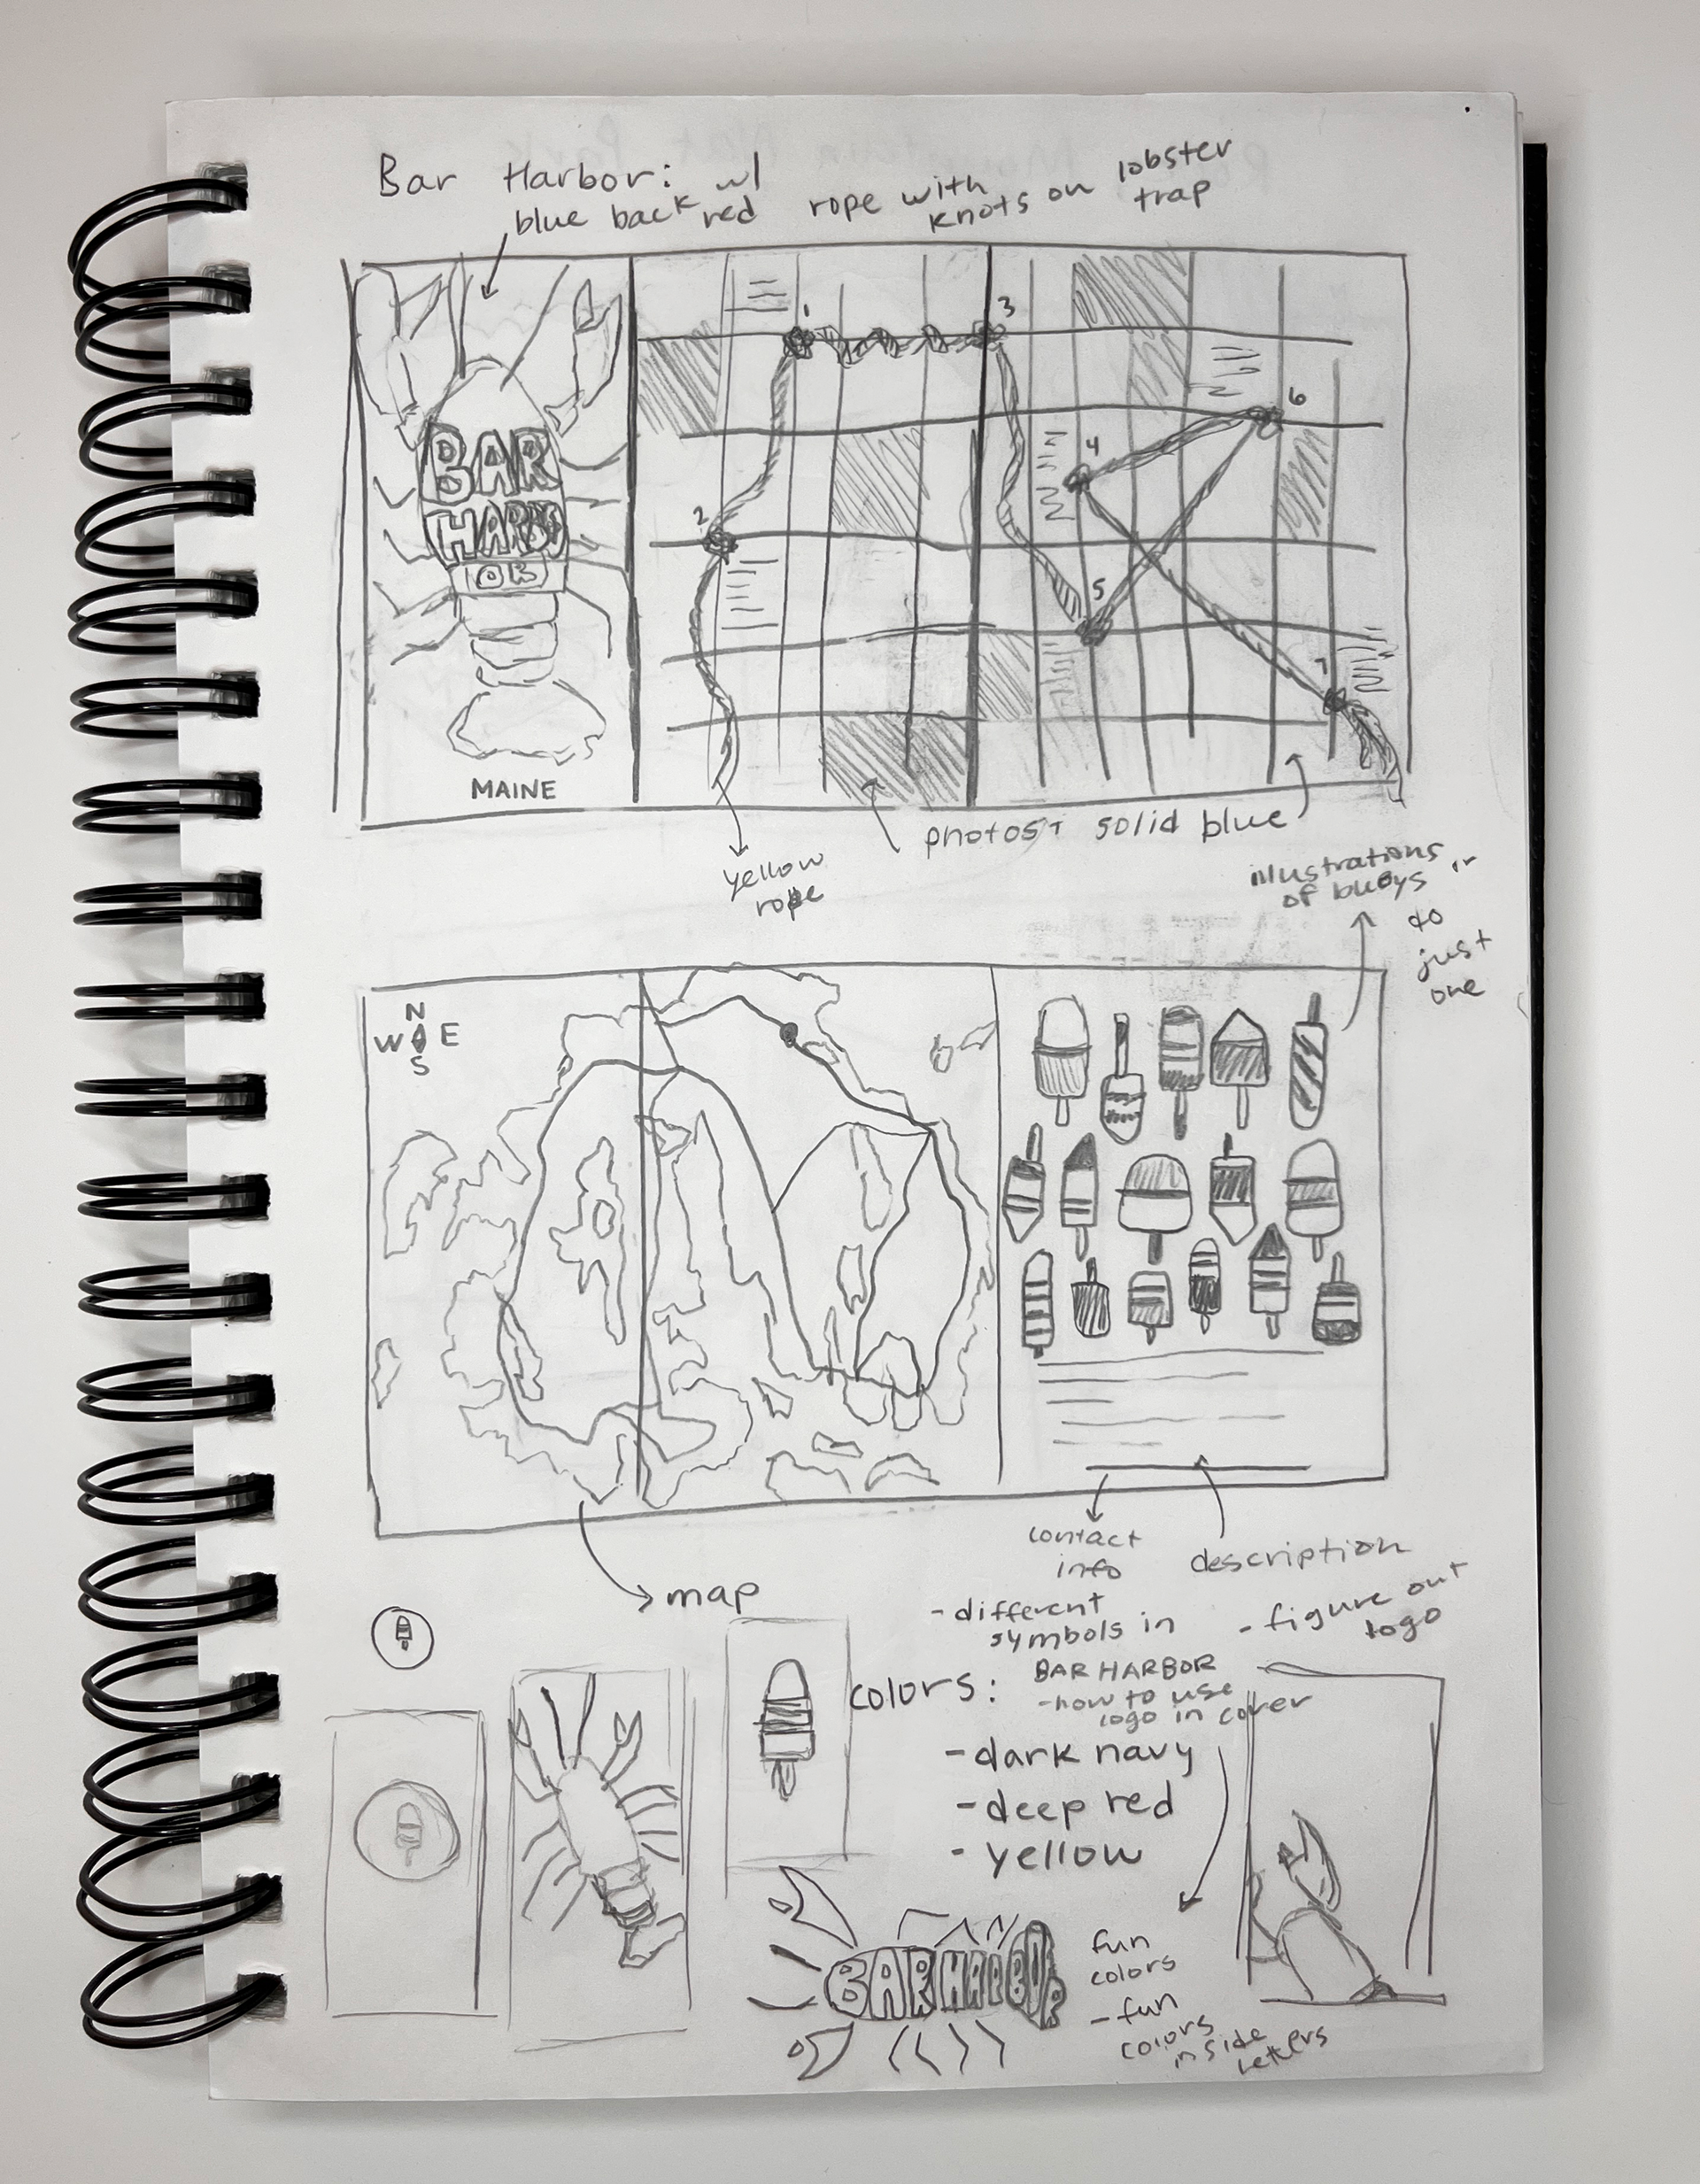 Bar Harbor:
blue back w/ red
rope with knots on
lobster trap
BAR
HARBO
OR
MAINE
1
2
3
4
5
6
7
yellow
rope
photos + solid blue
illustrations
of buoys
to
just
one
N
W E
S
map
contact
info
description
- different
symbols in
BAR HARBOR
- how to use
logo in cover
- figure out
logo
colors:
- dark navy
- deep red
- yellow
BAR HARBOR
fun
colors
- fun
colors
inside
letters